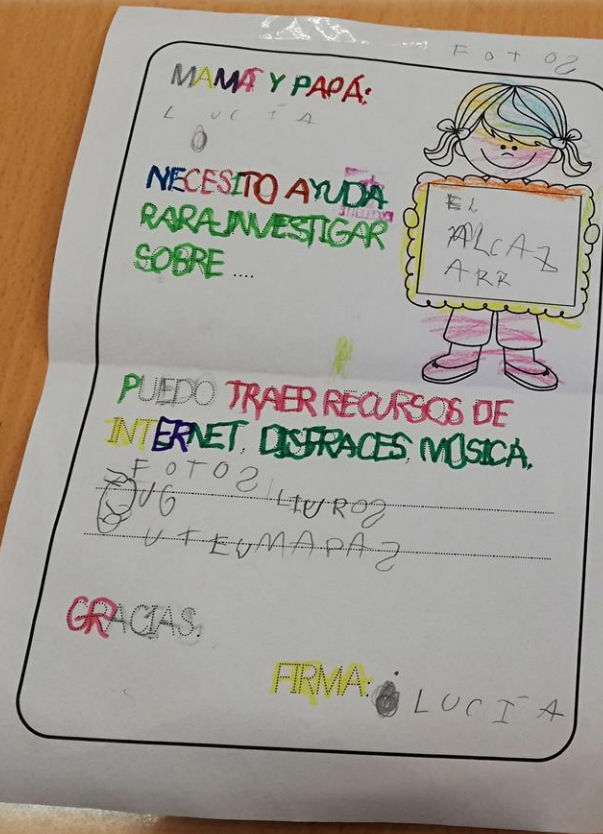 FOTOS
MAMÁ Y PAPÁ:
LUCÍA
NECESITO AYUDA
PARA INVESTIGAR
SOBRE ....
EL
ALCAZ
ARR
PUEDO TRAER RECURSOS DE
INTERNET, DISFRACES, MÚSICA,
FOTOS
LIVROS
MAPAS
GRACIAS.
FIRMA: LUCÍA